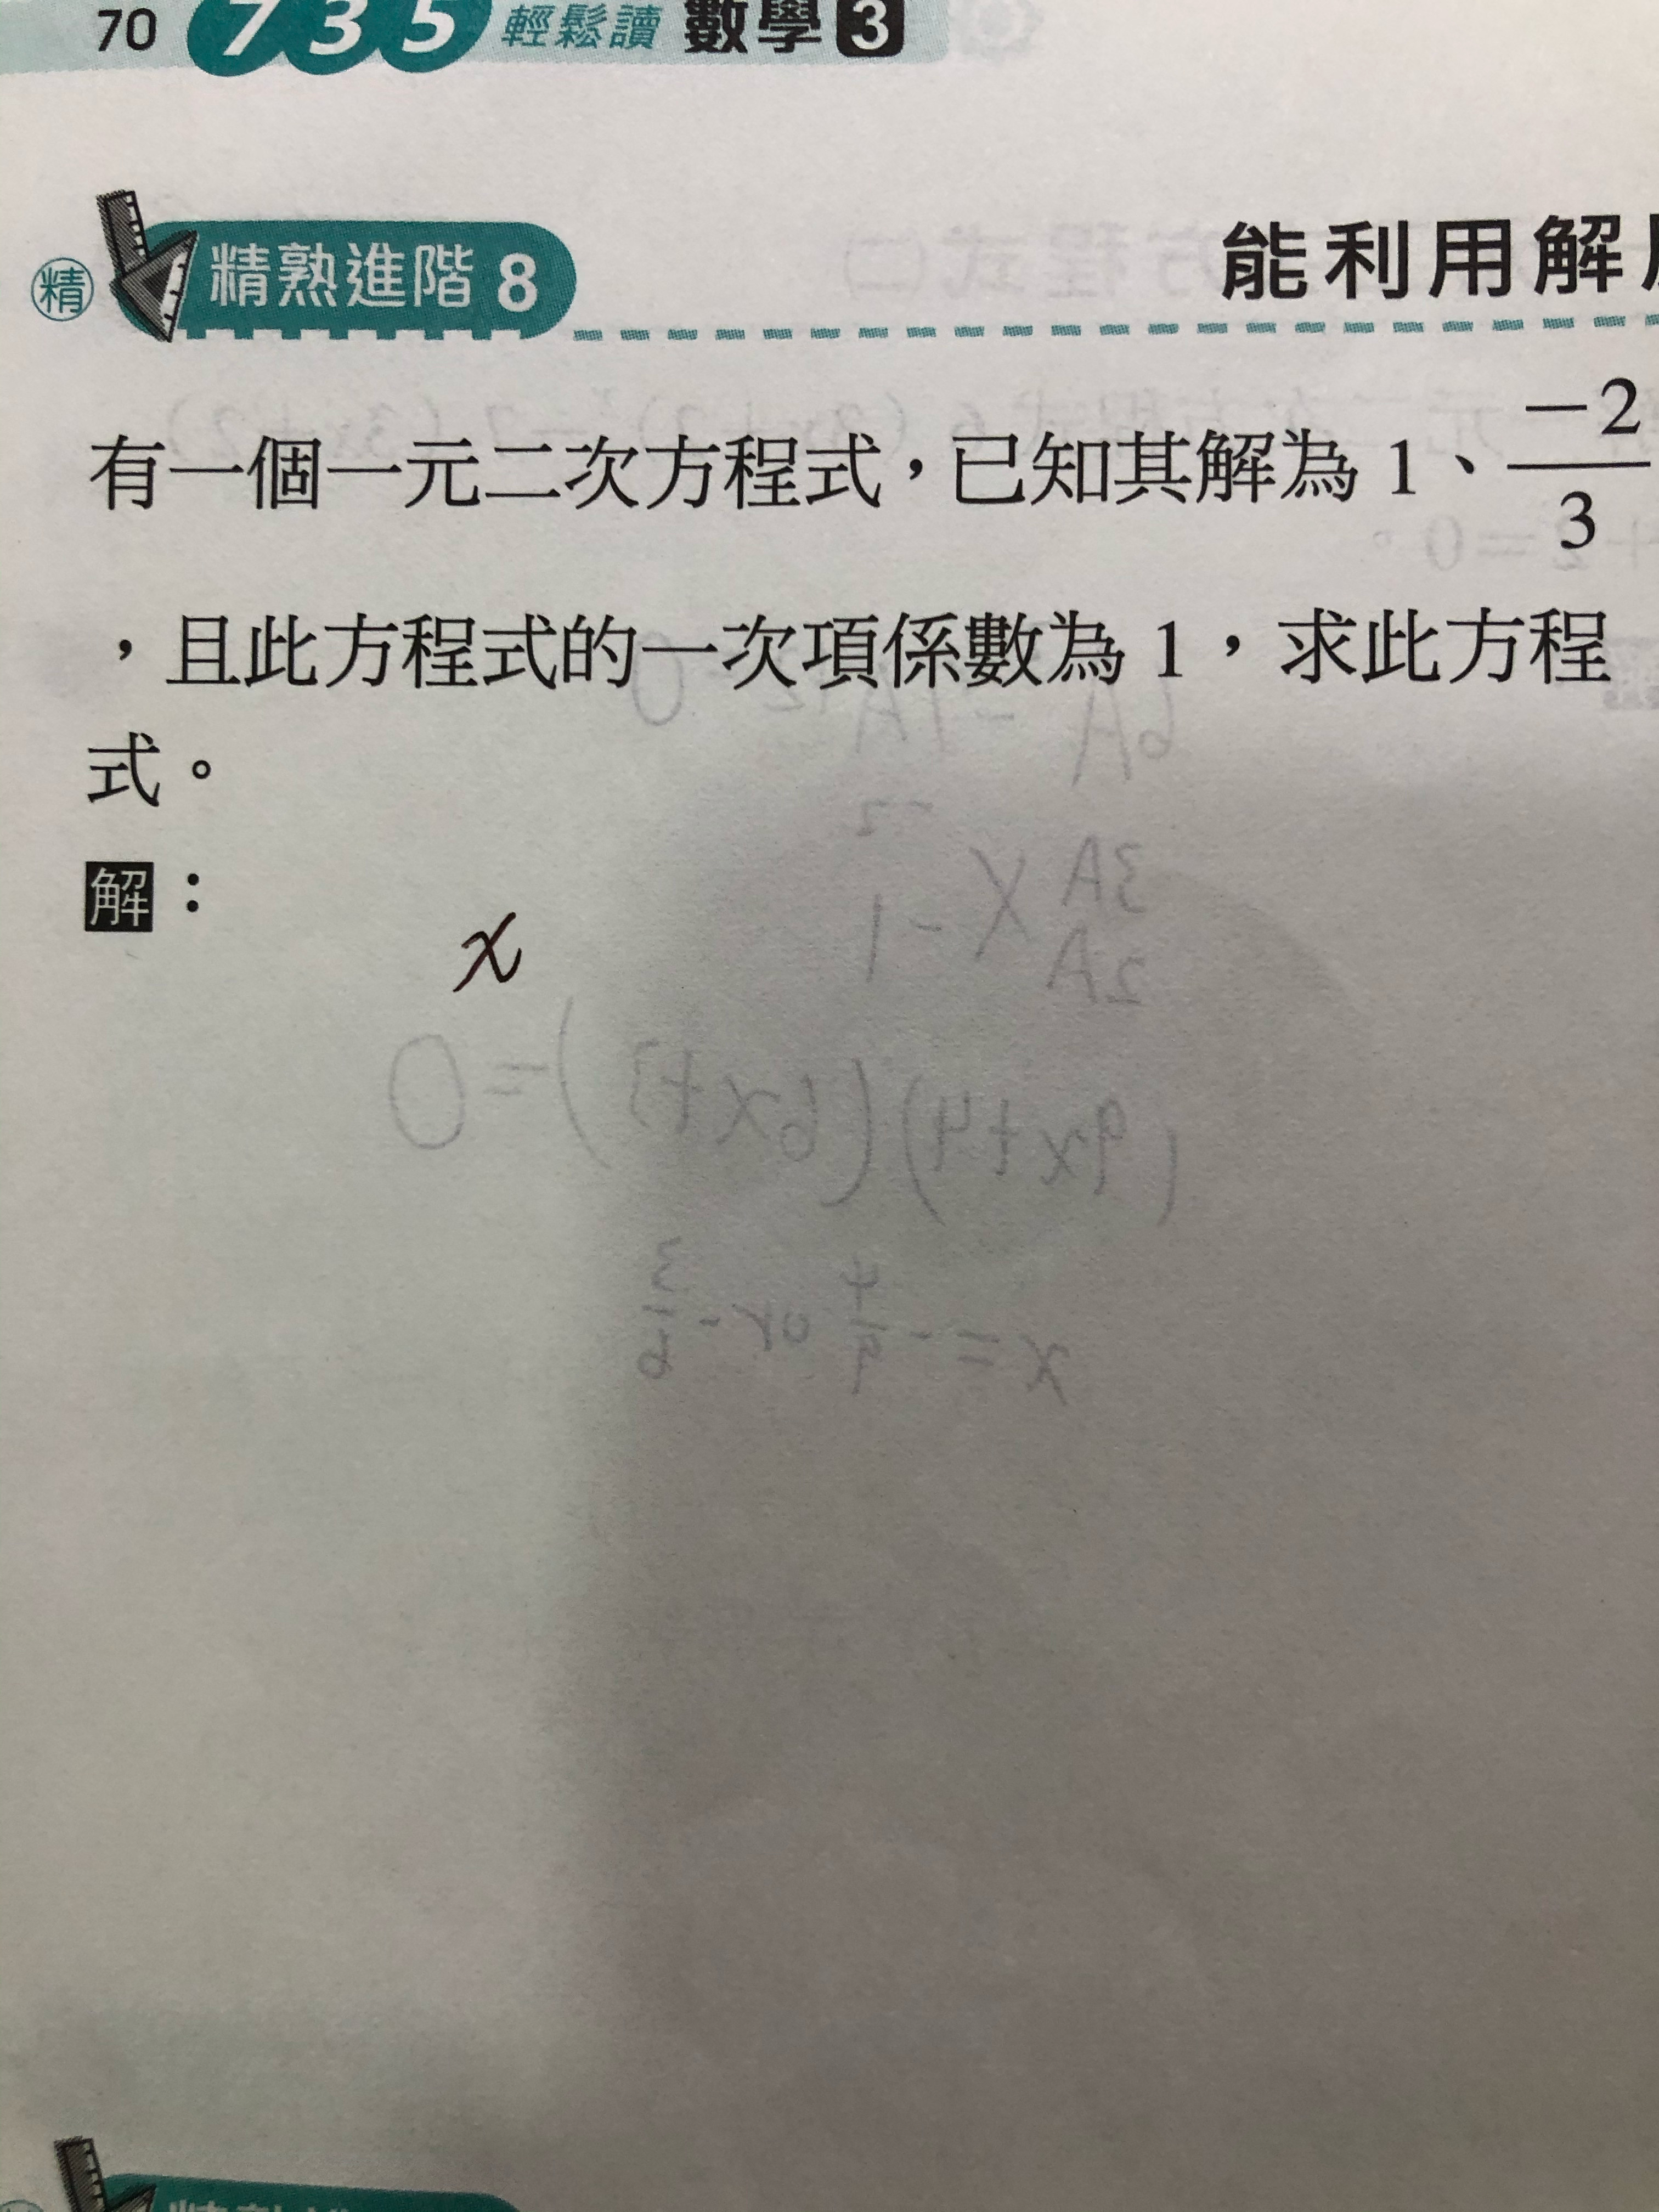 70 735 輕鬆讀 數學 3
精 精熟進階 8 能利用解
有一個一元二次方程式，已知其解為 1、$\frac{-2}{3}$
，且此方程式的一次項係數為 1，求此方程
式。
解：
x